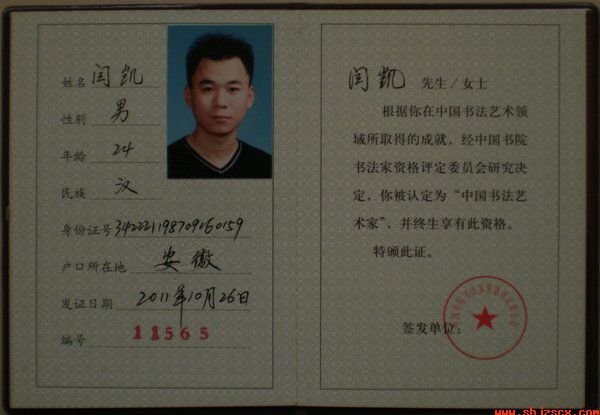 姓名 闫凯
性别 男
年龄 24
民族 汉
身份证号 342221198709060159
户口所在地 安徽
发证日期 2011年10月26日
编号 11565
闫凯 先生/女士
根据你在中国书法艺术领
域所取得的成就，经中国书院
书法家资格评定委员会研究决
定，你被认定为“中国书法艺
术家”，并终生享有此资格。
特颁此证。
签发单位：
www.shjzscx.com